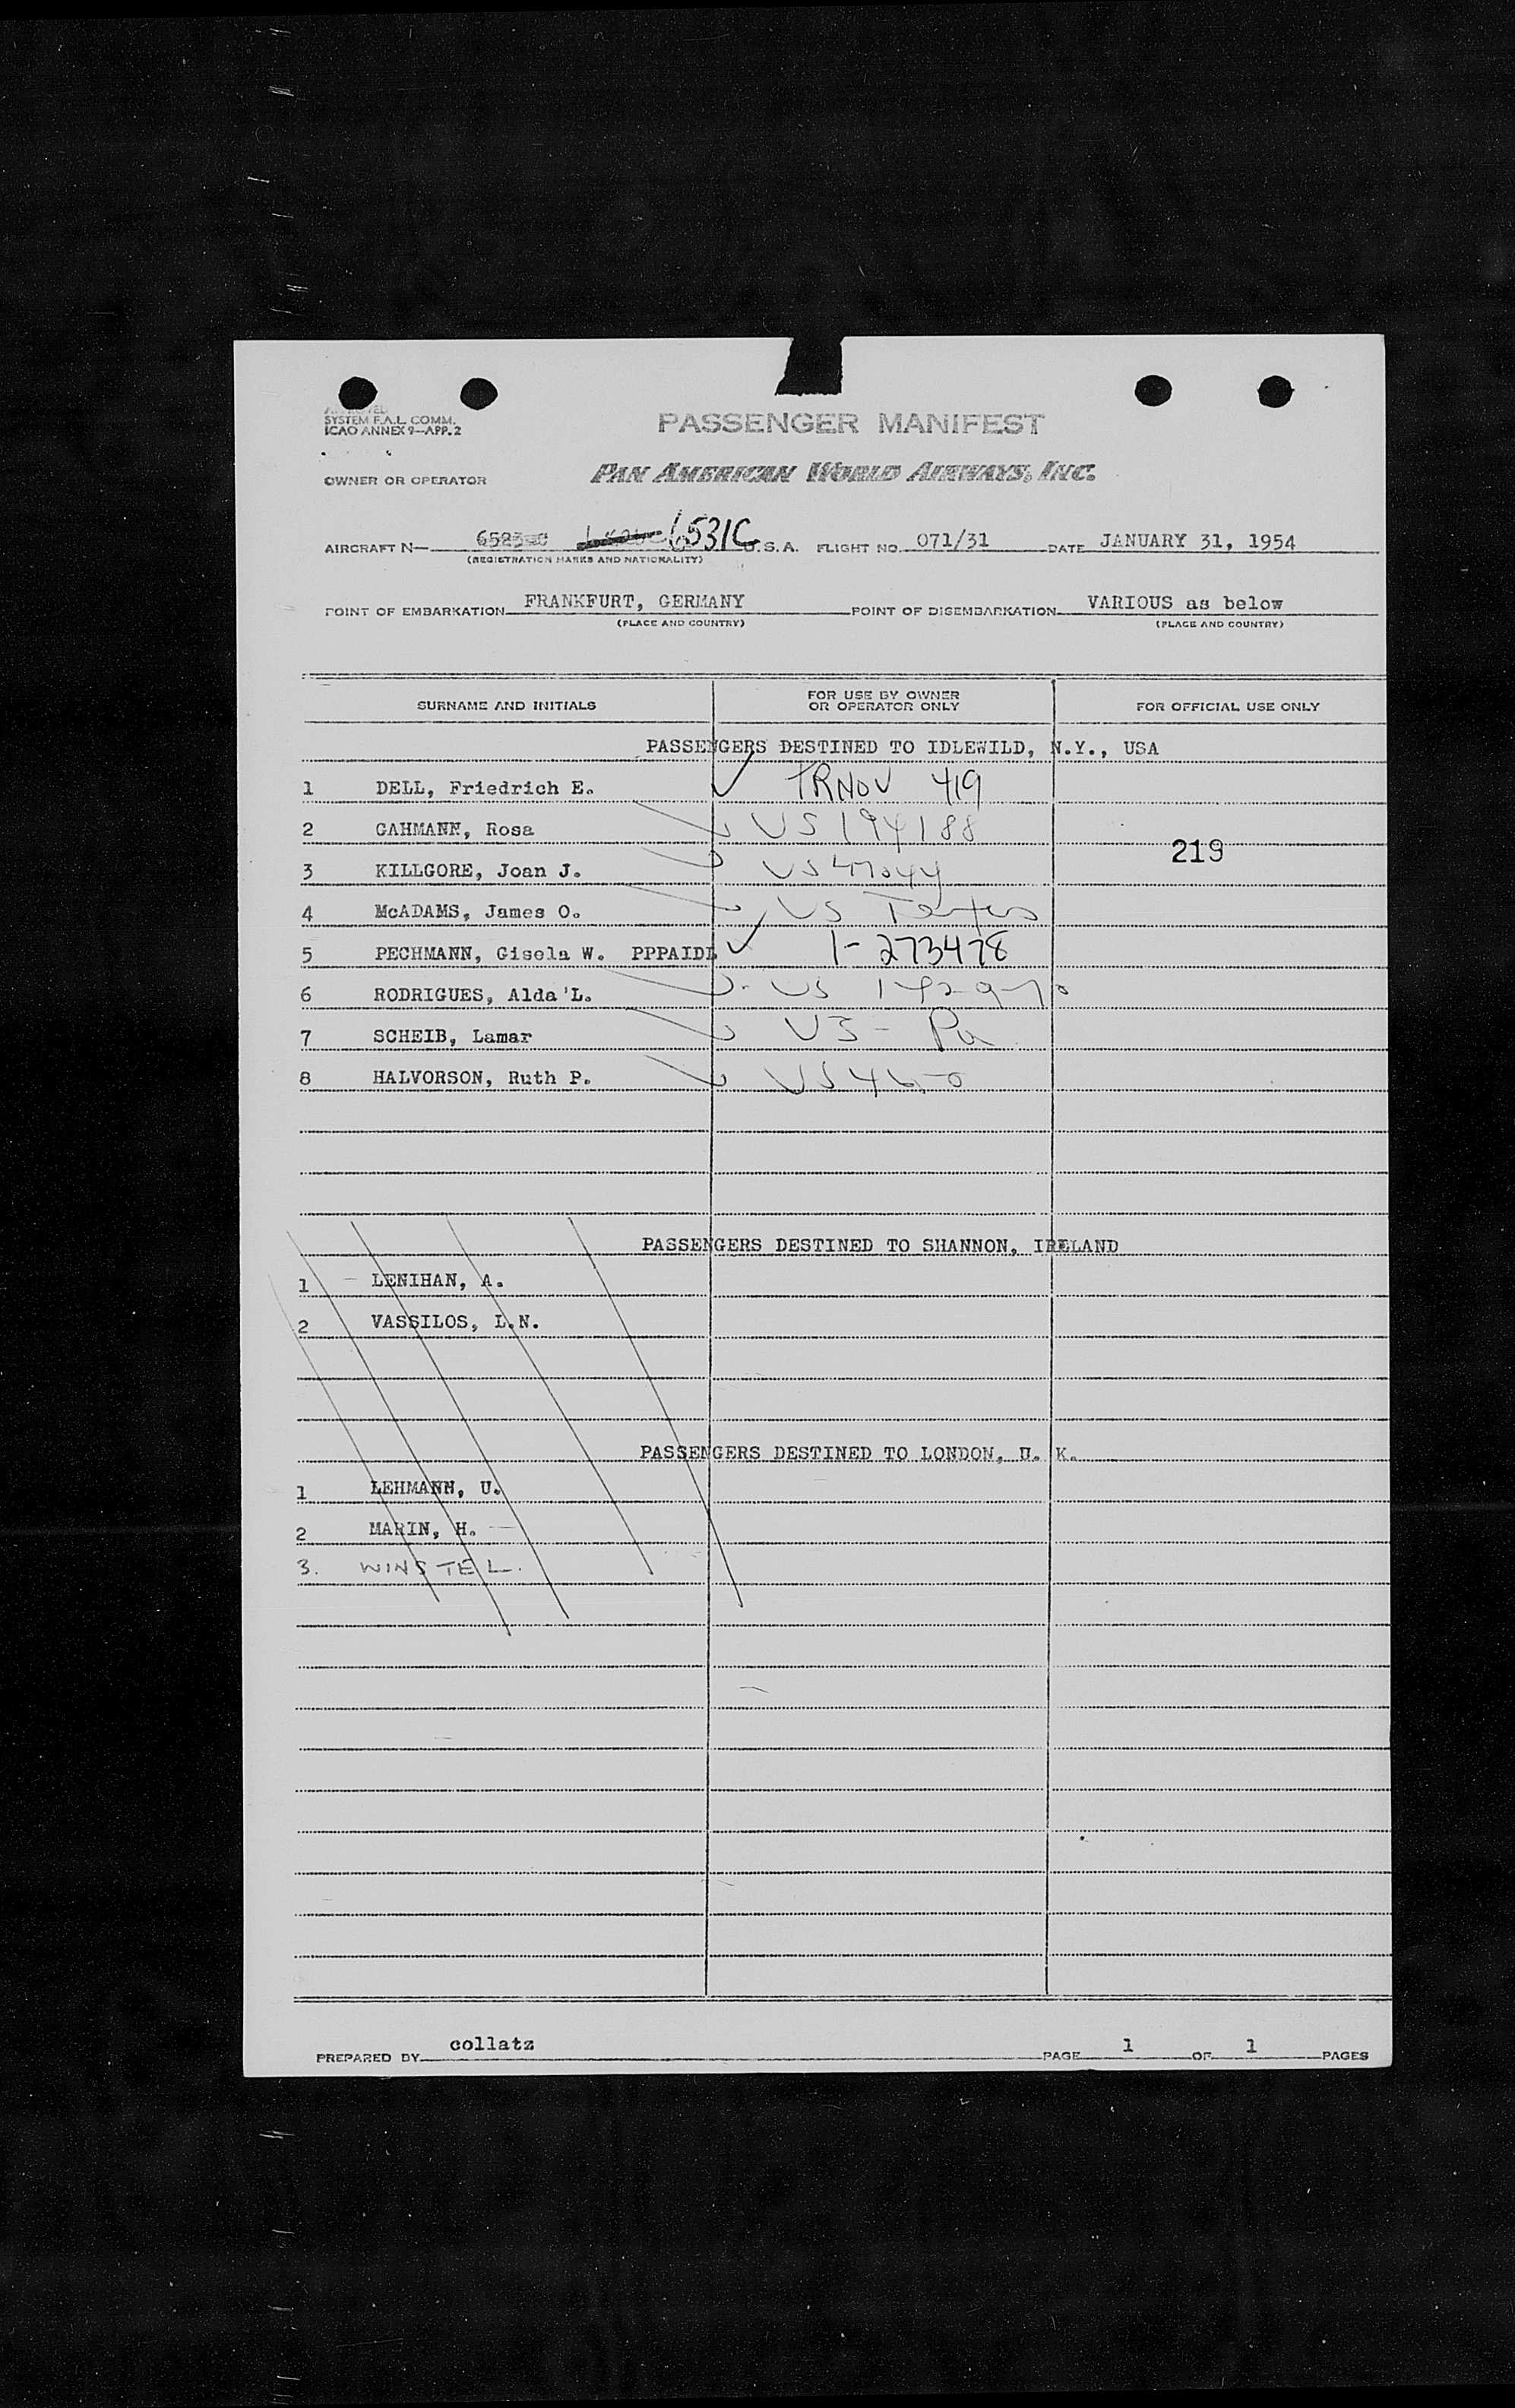 SYSTEM F.A.L. COMM.
ICAO ANNEX 9—APP. 2
PASSENGER MANIFEST
OWNER OR OPERATOR PAN AMERICAN WORLD AIRWAYS, INC.
AIRCRAFT N— 6531C U.S.A. FLIGHT NO. 071/31 DATE JANUARY 31, 1954
(REGISTRATION MARKS AND NATIONALITY)
POINT OF EMBARKATION FRANKFURT, GERMANY POINT OF DISEMBARKATION VARIOUS as below
(PLACE AND COUNTRY) (PLACE AND COUNTRY)
SURNAME AND INITIALS FOR USE BY OWNER OR OPERATOR ONLY FOR OFFICIAL USE ONLY
PASSENGERS DESTINED TO IDLEWILD, N.Y., USA
1 DELL, Friedrich E. TRNOV 419
2 GAHMANN, Rosa US 194188
219
3 KILLGORE, Joan J. US 47044
4 McADAMS, James O. US
5 PECHMANN, Gisela W. PPPAIDL 1-273478
6 RODRIGUES, Alda L. US
7 SCHEIB, Lamar US - Pa
8 HALVORSON, Ruth P. US
PASSENGERS DESTINED TO SHANNON, IRELAND
1 LENIHAN, A.
2 VASSILOS, L.N.
PASSENGERS DESTINED TO LONDON, U. K.
1 LEHMANN, U.
2 MARIN, H.
3. WINSTEL.
PREPARED BY collatz PAGE 1 OF 1 PAGES